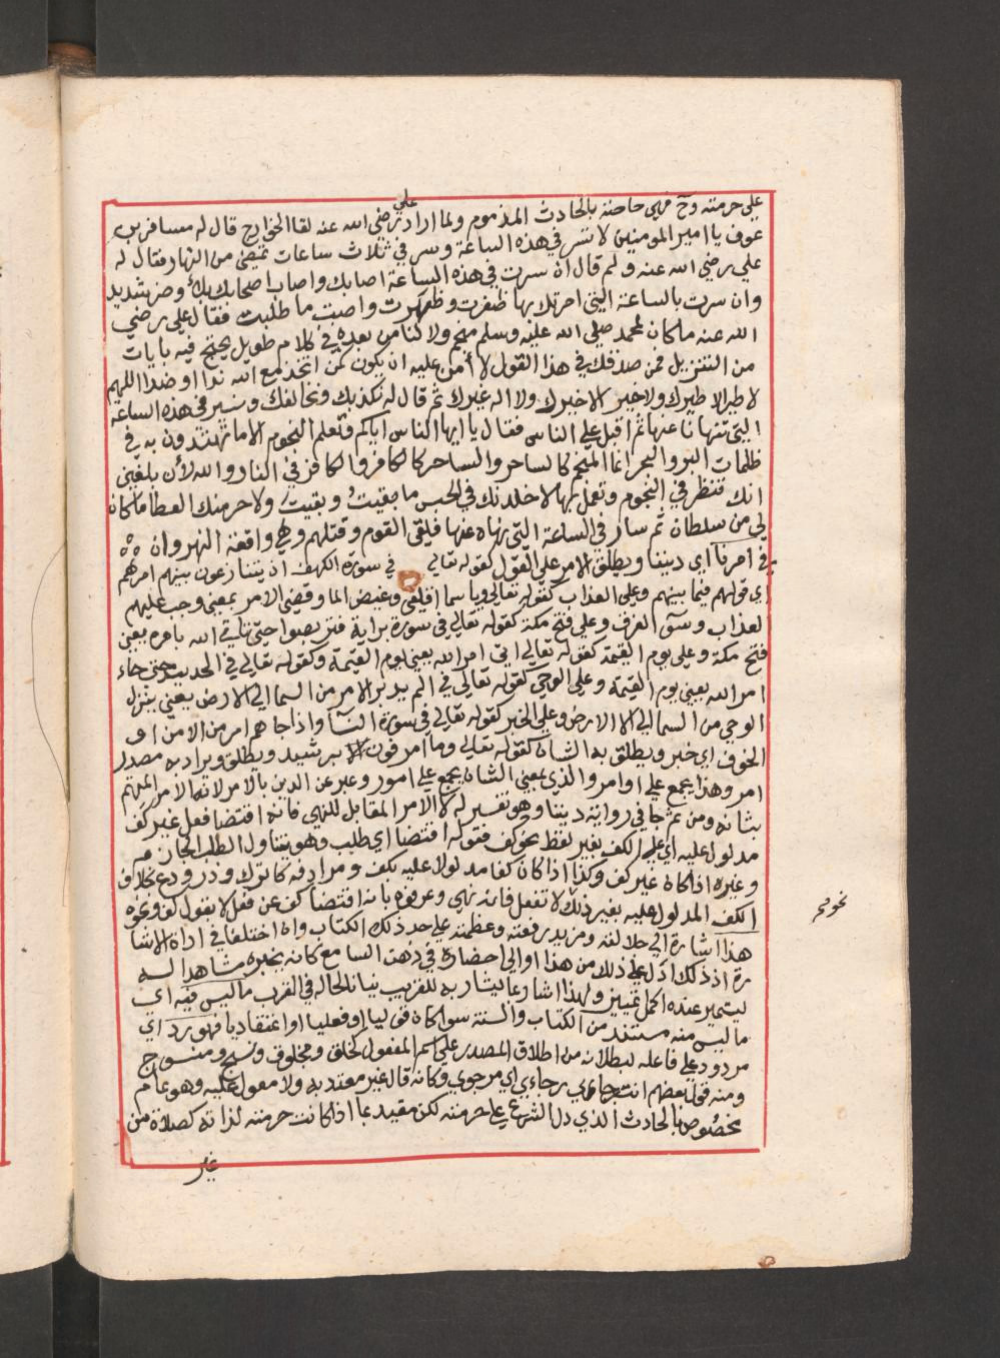 على حرمته وح فهي خاصة بالحادث المذموم ولما اراد علي رضي الله عنه لقا الخوارج قال له مسافر بن
عوف يا امير المومنين لا تسر في هذه الساعة وسر في ثلاث ساعات تمضى من النهار فقال له
علي رضي الله عنه ولم قال ان سرت في هذه الساعة اصابك واصاب اصحابك بلأ وضر شديد
وان سرت بالساعة التي امرتك بها ظفرت وظهرت واصبت ما طلبت فقال علي رضي
الله عنه ما كان لمحمد صلى الله عليه وسلم منجم ولا لنا من بعده في كلام طويل يحتج فيه بايات
من التنزيل فمن صدقك في هذا القول لا أمن عليه ان يكون كمن اتخذ مع الله ندا او ضدا اللهم
لا طير الا طيرك ولا خير الا خيرك ولا اله غيرك ثم قال له نكذبك ونخالفك ونسير في هذه الساعة
التي تنهانا عنها ثم اقبل على الناس فقال يا ايها الناس اياكم وتعلم النجوم الا ما تهتدون به في
ظلمات البر والبحر انما المنجم كالساحر والساحر كالكافر والكافر في النار والله لأن بلغني
انك تنظر في النجوم وتعمل بها لاخلدنك في الحبس ما بقيتُ وبقيتَ ولاحرمنك العطا ما كان
لي من سلطان ثم سار في الساعة التي نهاه عنها فلقى القوم وقتلهم وهي واقعة النهروان
في امرنا اي ديننا ويطلق الامر على القول كقوله تعالى في سورة الكهف اذ يتنازعون بينهم امرهم
اي قولهم فيما بينهم وعلى العذاب كقوله تعالى ويا سما اقلعى وغيض الما وقضى الامر بمعنى وجب عليهم
العذاب وسوء الغرق وعلى فتح مكة كقوله تعالى في سورة براية فتربصوا حتى ياتي الله بامره يعنى
فتح مكة وعلى يوم القيمة كقوله تعالى اتى امر الله يعنى يوم القيمة وكقوله تعالى في الحديد حتى جاء
امر الله يعنى يوم القيمة وعلى الوحي كقوله تعالى في الم يدبر الامر من السما الى الارض يعني ينزل
الوحي من السما الى الارض وعلى الخبر كقوله تعالى في سورة النسا واذا جاهم امر من الامن او
الخوف اي خبر ويطلق به الشان كقوله تعالى وما امر فرعون برشيد ويطلق ويراد به مصدر
امر وهذا يجمع على اوامر والذي بمعنى الشان يجمع على امور وعبر عن الدين بالامر لانه الامر المهتم
بشانه ومن ثم جا في رواية ديننا وهو تفسير له لا الامر المقابل للنهي فانه اقتضا فعل غير كف
مدلول عليه اي على الكف بغير لفظ نحو كف فقوله اقتضا اي طلب وهو يتناول الطلب الجازم
وغيره اذا كان غير كف وكذا اذا كان كفا مدلولا عليه بكف ومرادفه كاترك وذر ودع بخلاف
الكف المدلول عليه بغير ذلك لا تفعل فانه نهي وعرفوه بانه اقتضا كف عن فعل لا بقول كف ونحوه
هذا اشارة الى جلالته ومزيد رفعته وعظمته على حد ذلك الكتاب وان اختلفا في اداة الاشا
رة اذ ذلك ادل على ذلك من هذا او الى احضاره في ذهن السامع كانه بخبره مشاهدا له
ليتميز عنده اكمل تمييز ولهذا اشار بما يشار به للقريب بيانا لحاله في القرب ما ليس فيه اي
ما ليس منه مستند من الكتاب والسنة سوا كان قوليا او فعليا او اعتقاديا فهو رد اي
مردود على فاعله لبطلانه من اطلاق المصدر على اسم المفعول كخلق ومخلوق ونسج ومنسوج
ومنه قول بعضهم انت رجاءي اي مرجوي وكانه قال غير معتد به ولا معول عليه وهو عام
مخصوص بالحادث الذي دل الشرع على حرمته لكن مقيد بما اذا كانت حرمته لذاته كصلاة من
غير
نحو